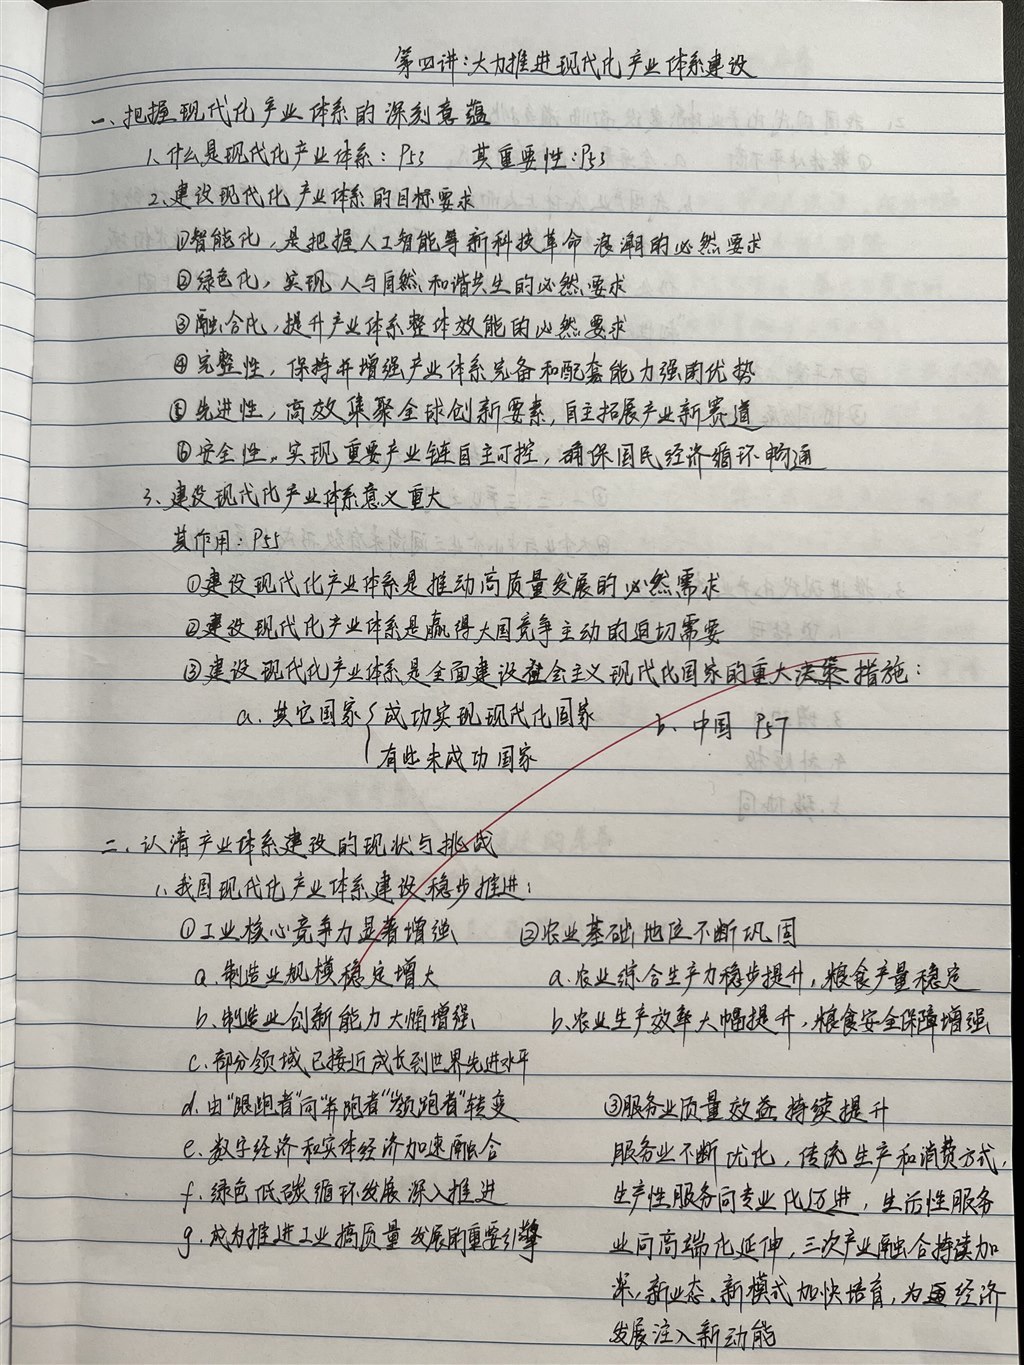 第四讲：大力推进现代化产业体系建设
一、把握现代化产业体系的深刻意蕴
1、什么是现代化产业体系：P53 其重要性：P53
2、建设现代化产业体系的目标要求
①智能化，是把握人工智能等新科技革命浪潮的必然要求
②绿色化，实现人与自然和谐共生的必然要求
③融合化，提升产业体系整体效能的必然要求
④完整性，保持并增强产业体系完备和配套能力强的优势
⑤先进性，高效集聚全球创新要素，自主拓展产业新赛道
⑥安全性，实现重要产业链自主可控，确保国民经济循环畅通
3、建设现代化产业体系意义重大
其作用：P55
①建设现代化产业体系是推动高质量发展的必然需求
②建设现代化产业体系是赢得大国竞争主动的迫切需要
③建设现代化产业体系是全面建设社会主义现代化国家的重大决策措施：
a. 其它国家{成功实现现代化国家 b. 中国 P57
有些未成功国家
二、认清产业体系建设的现状与挑战
1、我国现代化产业体系建设稳步推进：
①工业核心竞争力显著增强
a. 制造业规模稳定增大
b. 制造业创新能力大幅增强
c. 部分领域已接近成长到世界先进水平
d. 由“跟跑者”向“并跑者”“领跑者”转变
e. 数字经济和实体经济加速融合
f. 绿色低碳循环发展深入推进
g. 成为推进工业搞质量发展的重要引擎
②农业基础地位不断巩固
a. 农业综合生产力稳步提升，粮食产量稳定
b. 农业生产效率大幅提升，粮食安全保障增强
③服务业质量效益持续提升
服务业不断优化，传统生产和消费方式，
生产性服务向专业化迈进，生活性服务
业向高端化延伸，三次产业融合持续加
深，新业态、新模式加快培育，为 经济
发展注入新动能